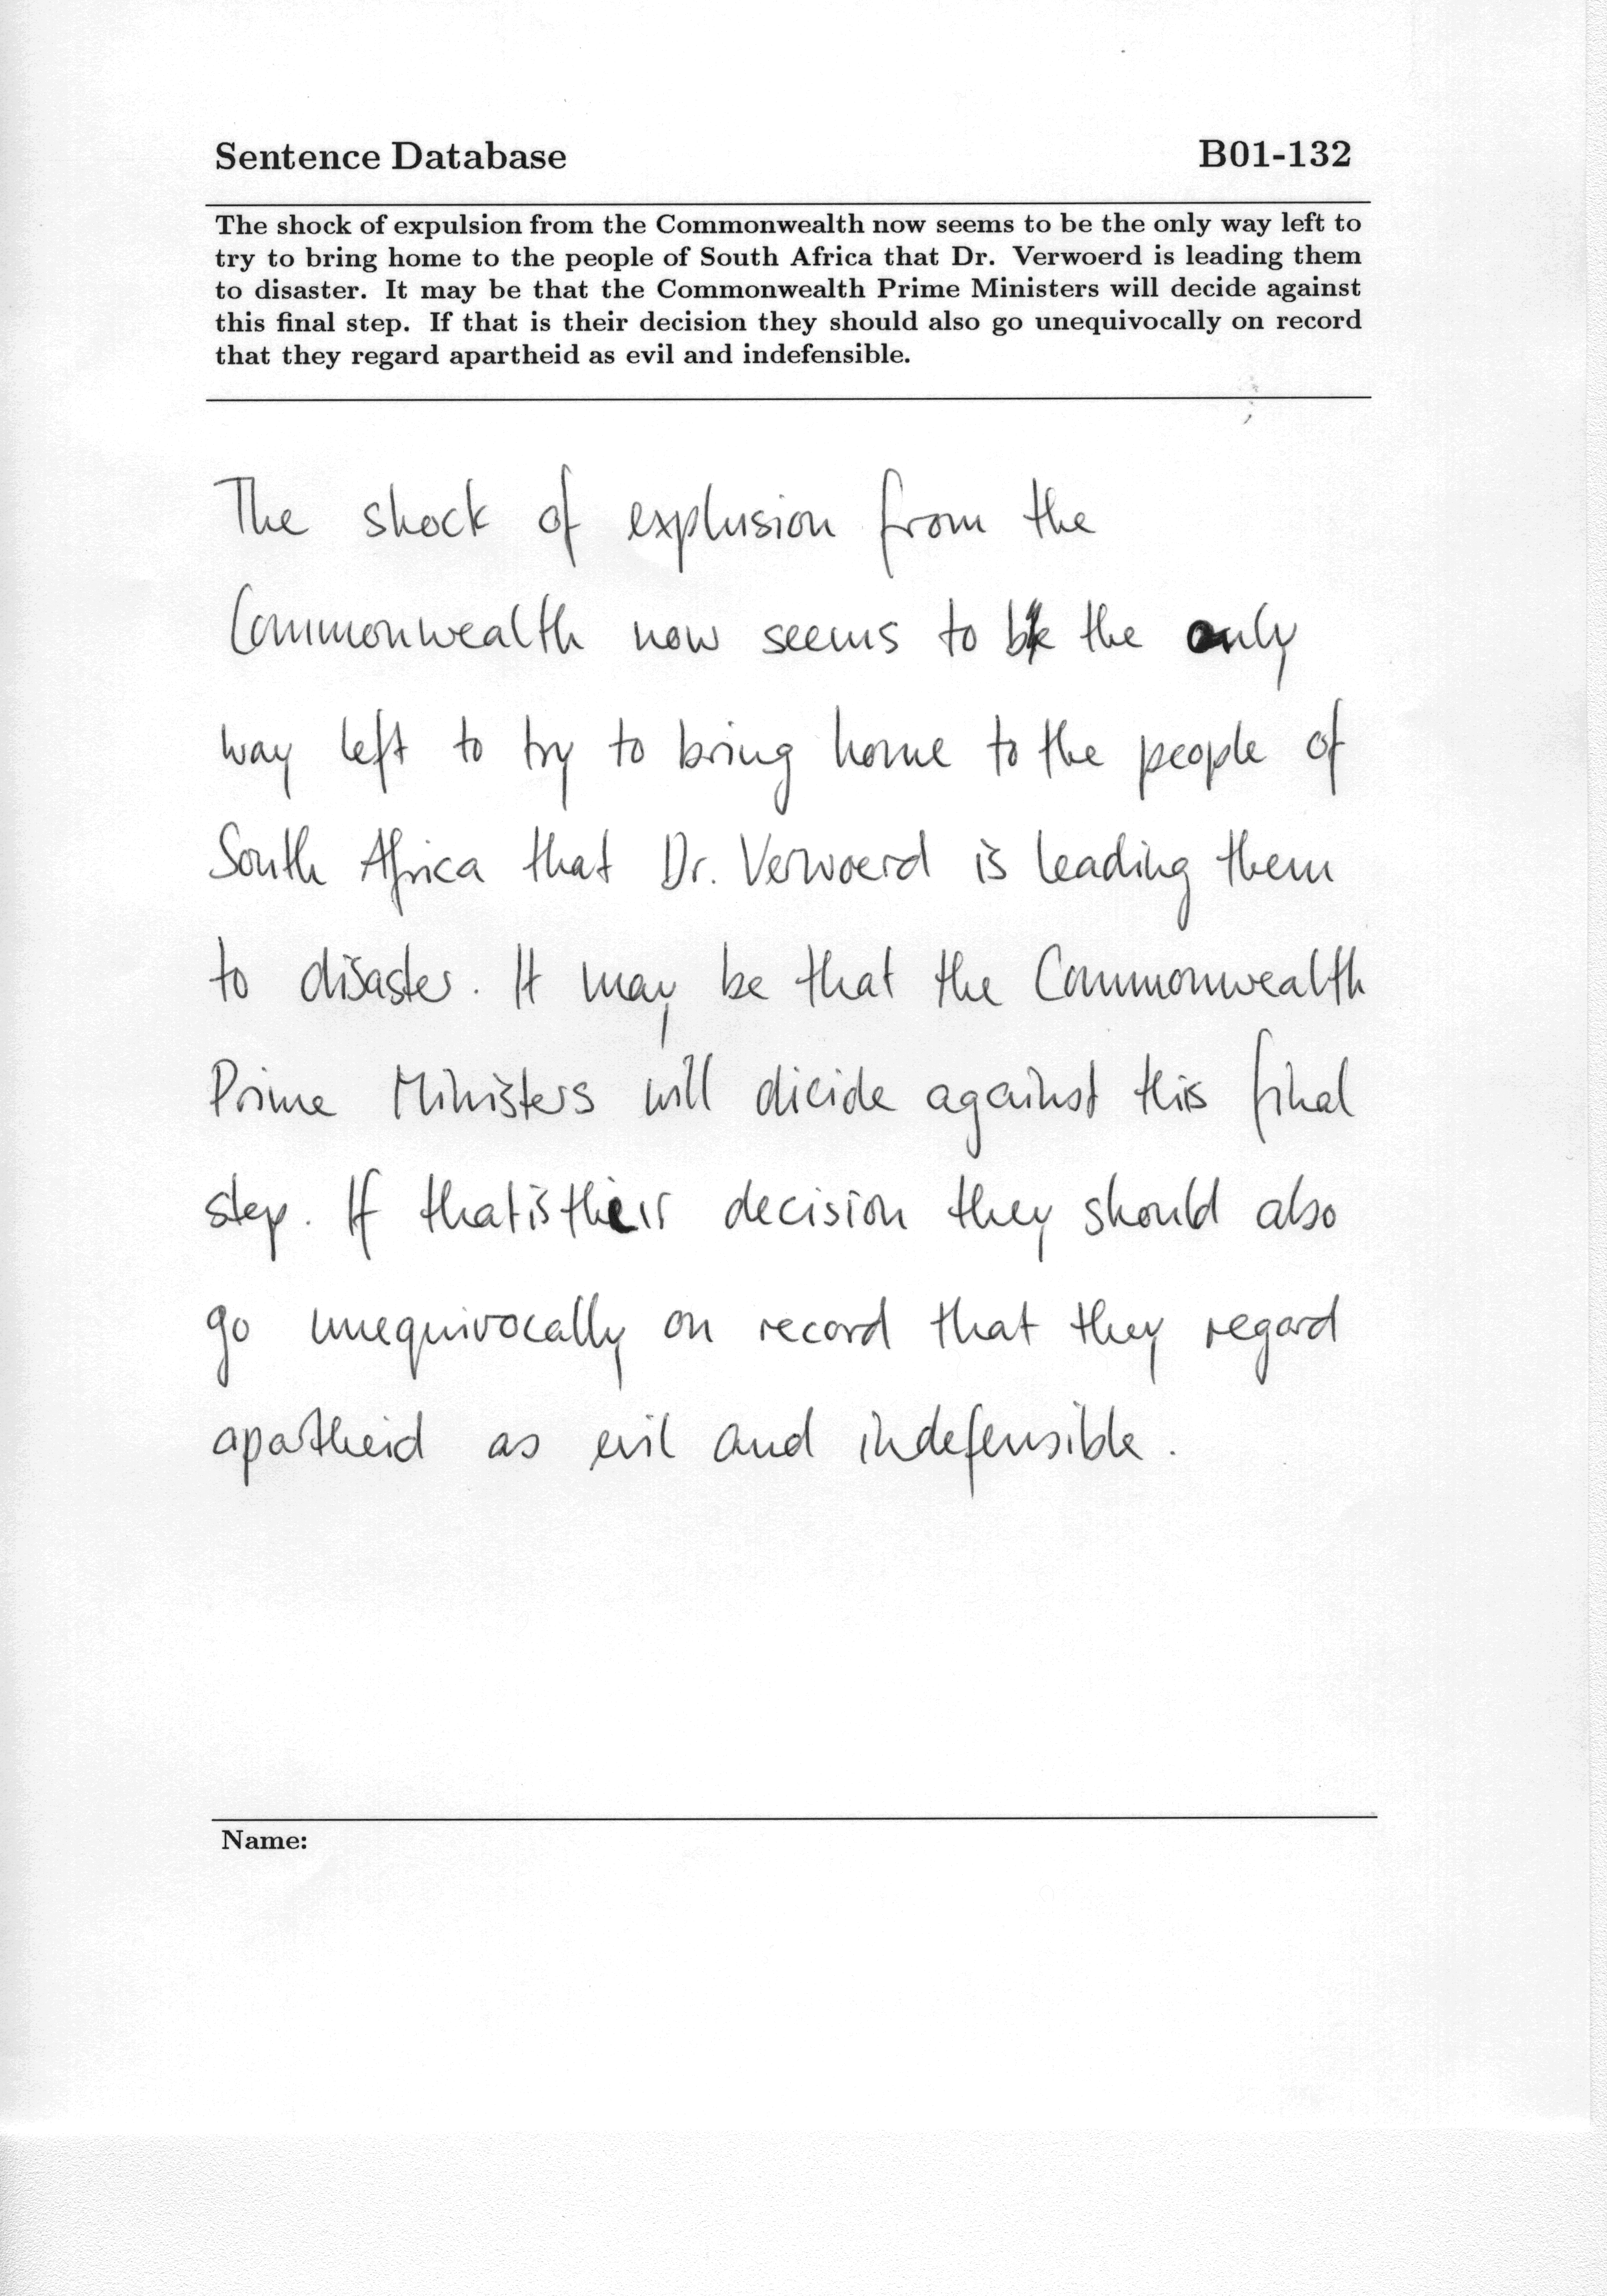 Sentence Database B01-132
The shock of expulsion from the Commonwealth now seems to be the only way left to
try to bring home to the people of South Africa that Dr. Verwoerd is leading them
to disaster. It may be that the Commonwealth Prime Ministers will decide against
this final step. If that is their decision they should also go unequivocally on record
that they regard apartheid as evil and indefensible.
The shock of explusion from the
Commonwealth now seems to be the only
way left to try to bring home to the people of
South Africa that Dr. Verwoerd is leading them
to disaster. It may be that the Commonwealth
Prime Ministers will dicide against this final
step. If that is their decision they should also
go unequivocally on record that they regard
apartheid as evil and indefensible.
Name: